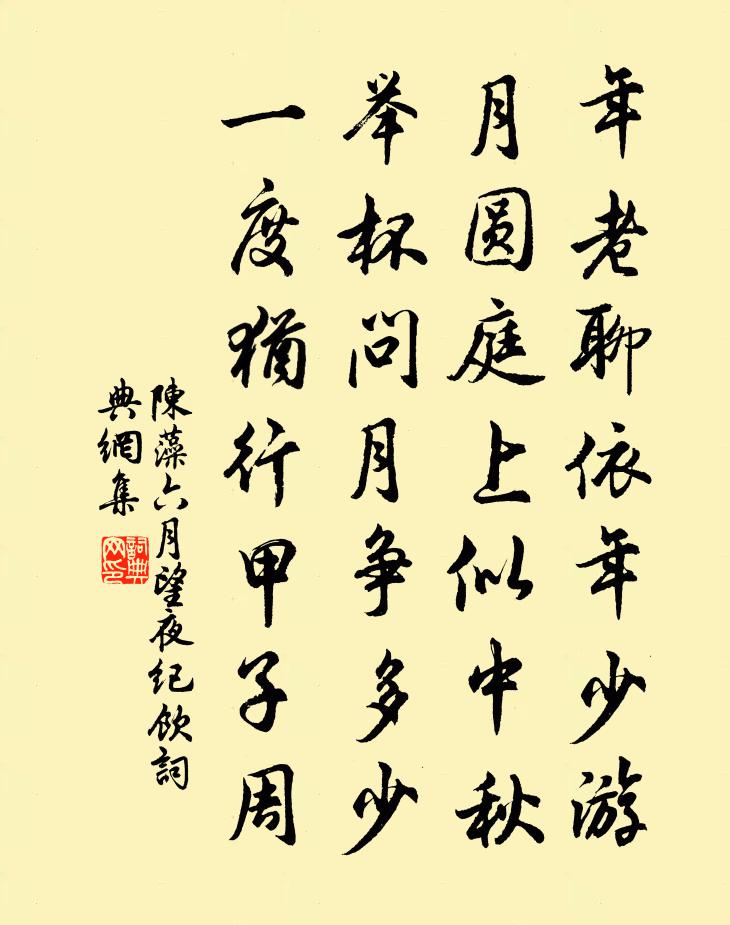 年老聊依年少游
月圆庭上似中秋
举杯问月争多少
一度犹行甲子周
陳藻六月望夜纪飲詞
典網集
詞典
网印